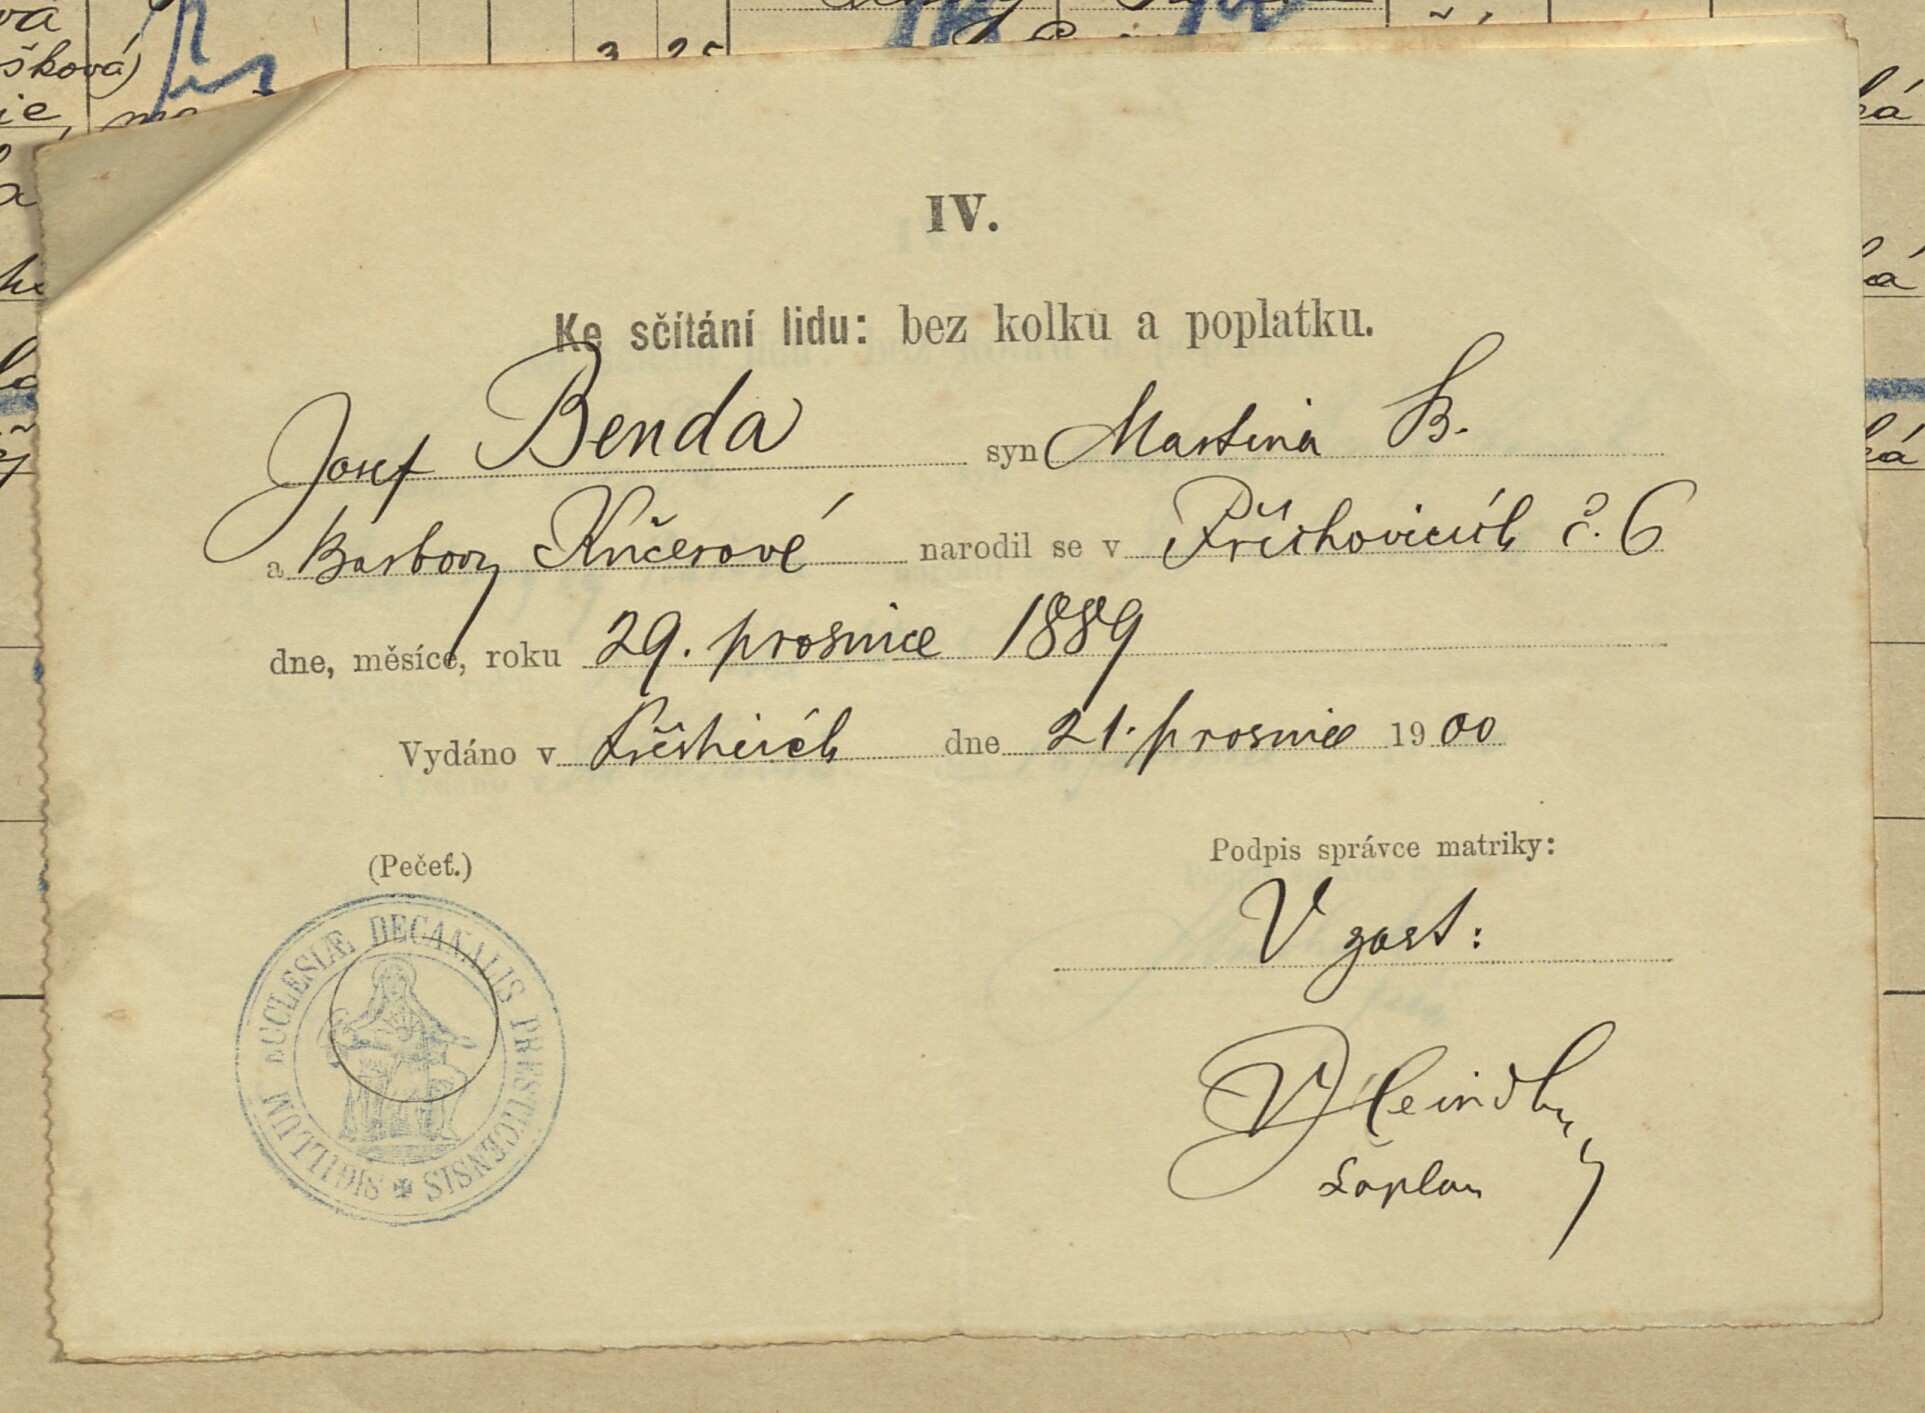 šková)
3 25
IV.
Ke sčítání lidu: bez kolku a poplatku.
Josef Benda syn Martina B.
a Barbory Kučerové narodil se v Příchovicích č. 6
dne, měsíce, roku 29. prosince 1889
Vydáno v Přešticích dne 21. prosince 1900
(Pečeť.)
Podpis správce matriky:
V zast:
kaplan
SIGILLUM ECCLESIÆ DECANALIS PRESTICENSIS